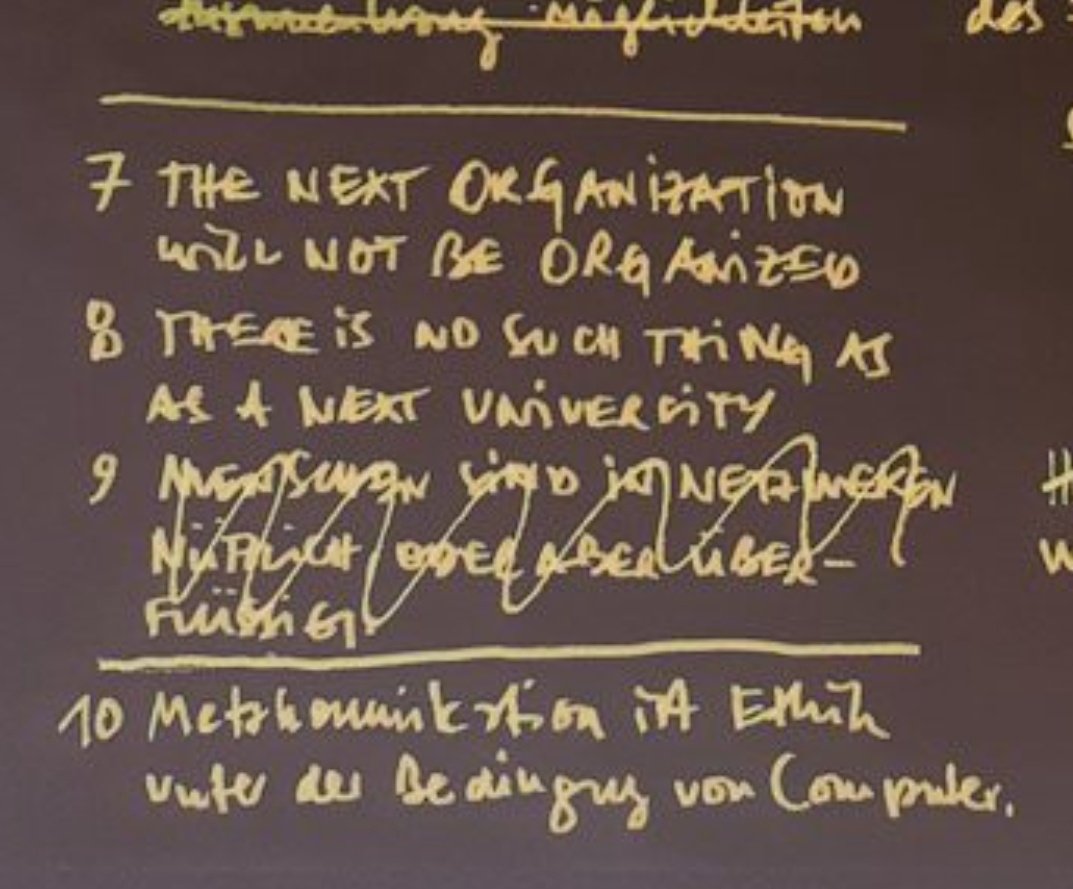 möglichkeiten des
7 THE NEXT ORGANIZATION
WILL NOT BE ORGANIZED
8 THERE IS NO SUCH THING AS
AS A NEXT UNIVERSITY
9 MENSCHEN SIND IN NETZWERKEN
NÜTZLICH ODER ABER ÜBER-
FLÜSSIG.
10 Metakommunikation ist Ethik
unter der Bedingung von Computer.